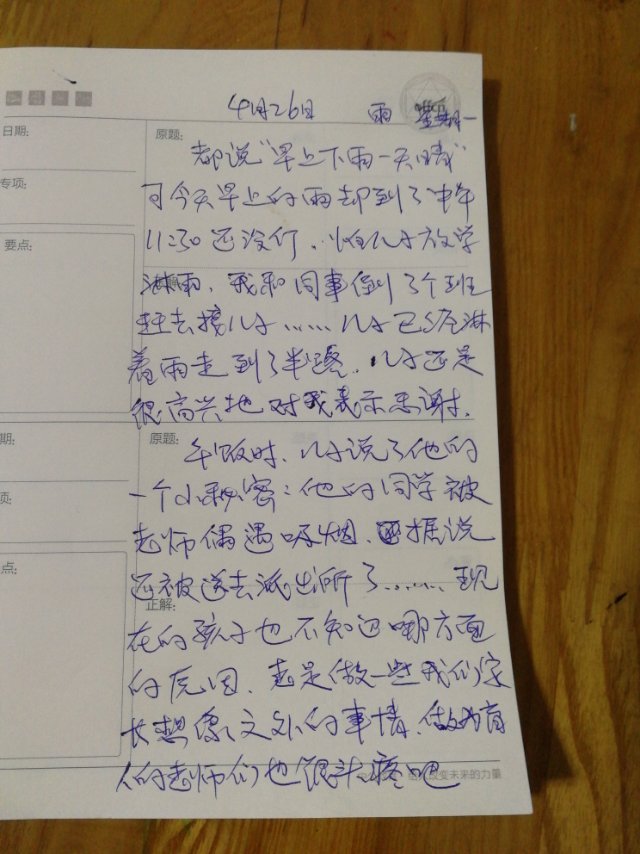 4月26日 雨 星期一
日期:
原题:
都说"早上下雨一天晴"
专项:
可今天早上的雨却到了中午
要点:
11:30还没停、怕儿子放学
淋雨，我和同事倒了个班
赶去接儿子……儿子已经淋
着雨走到了半路、儿子还是
很高兴地对我表示感谢.
期:
原题:
午饭时、儿子说了他的
一个小秘密:他的同学被
项:
老师偶遇吸烟、据说
点:
还被送去派出所了……现
正解:
在的孩子也不知道哪方面
的原因、老是做一些我们家
长想像之外的事情.做为育
人的老师们也很头疼吧
改变未来的力量